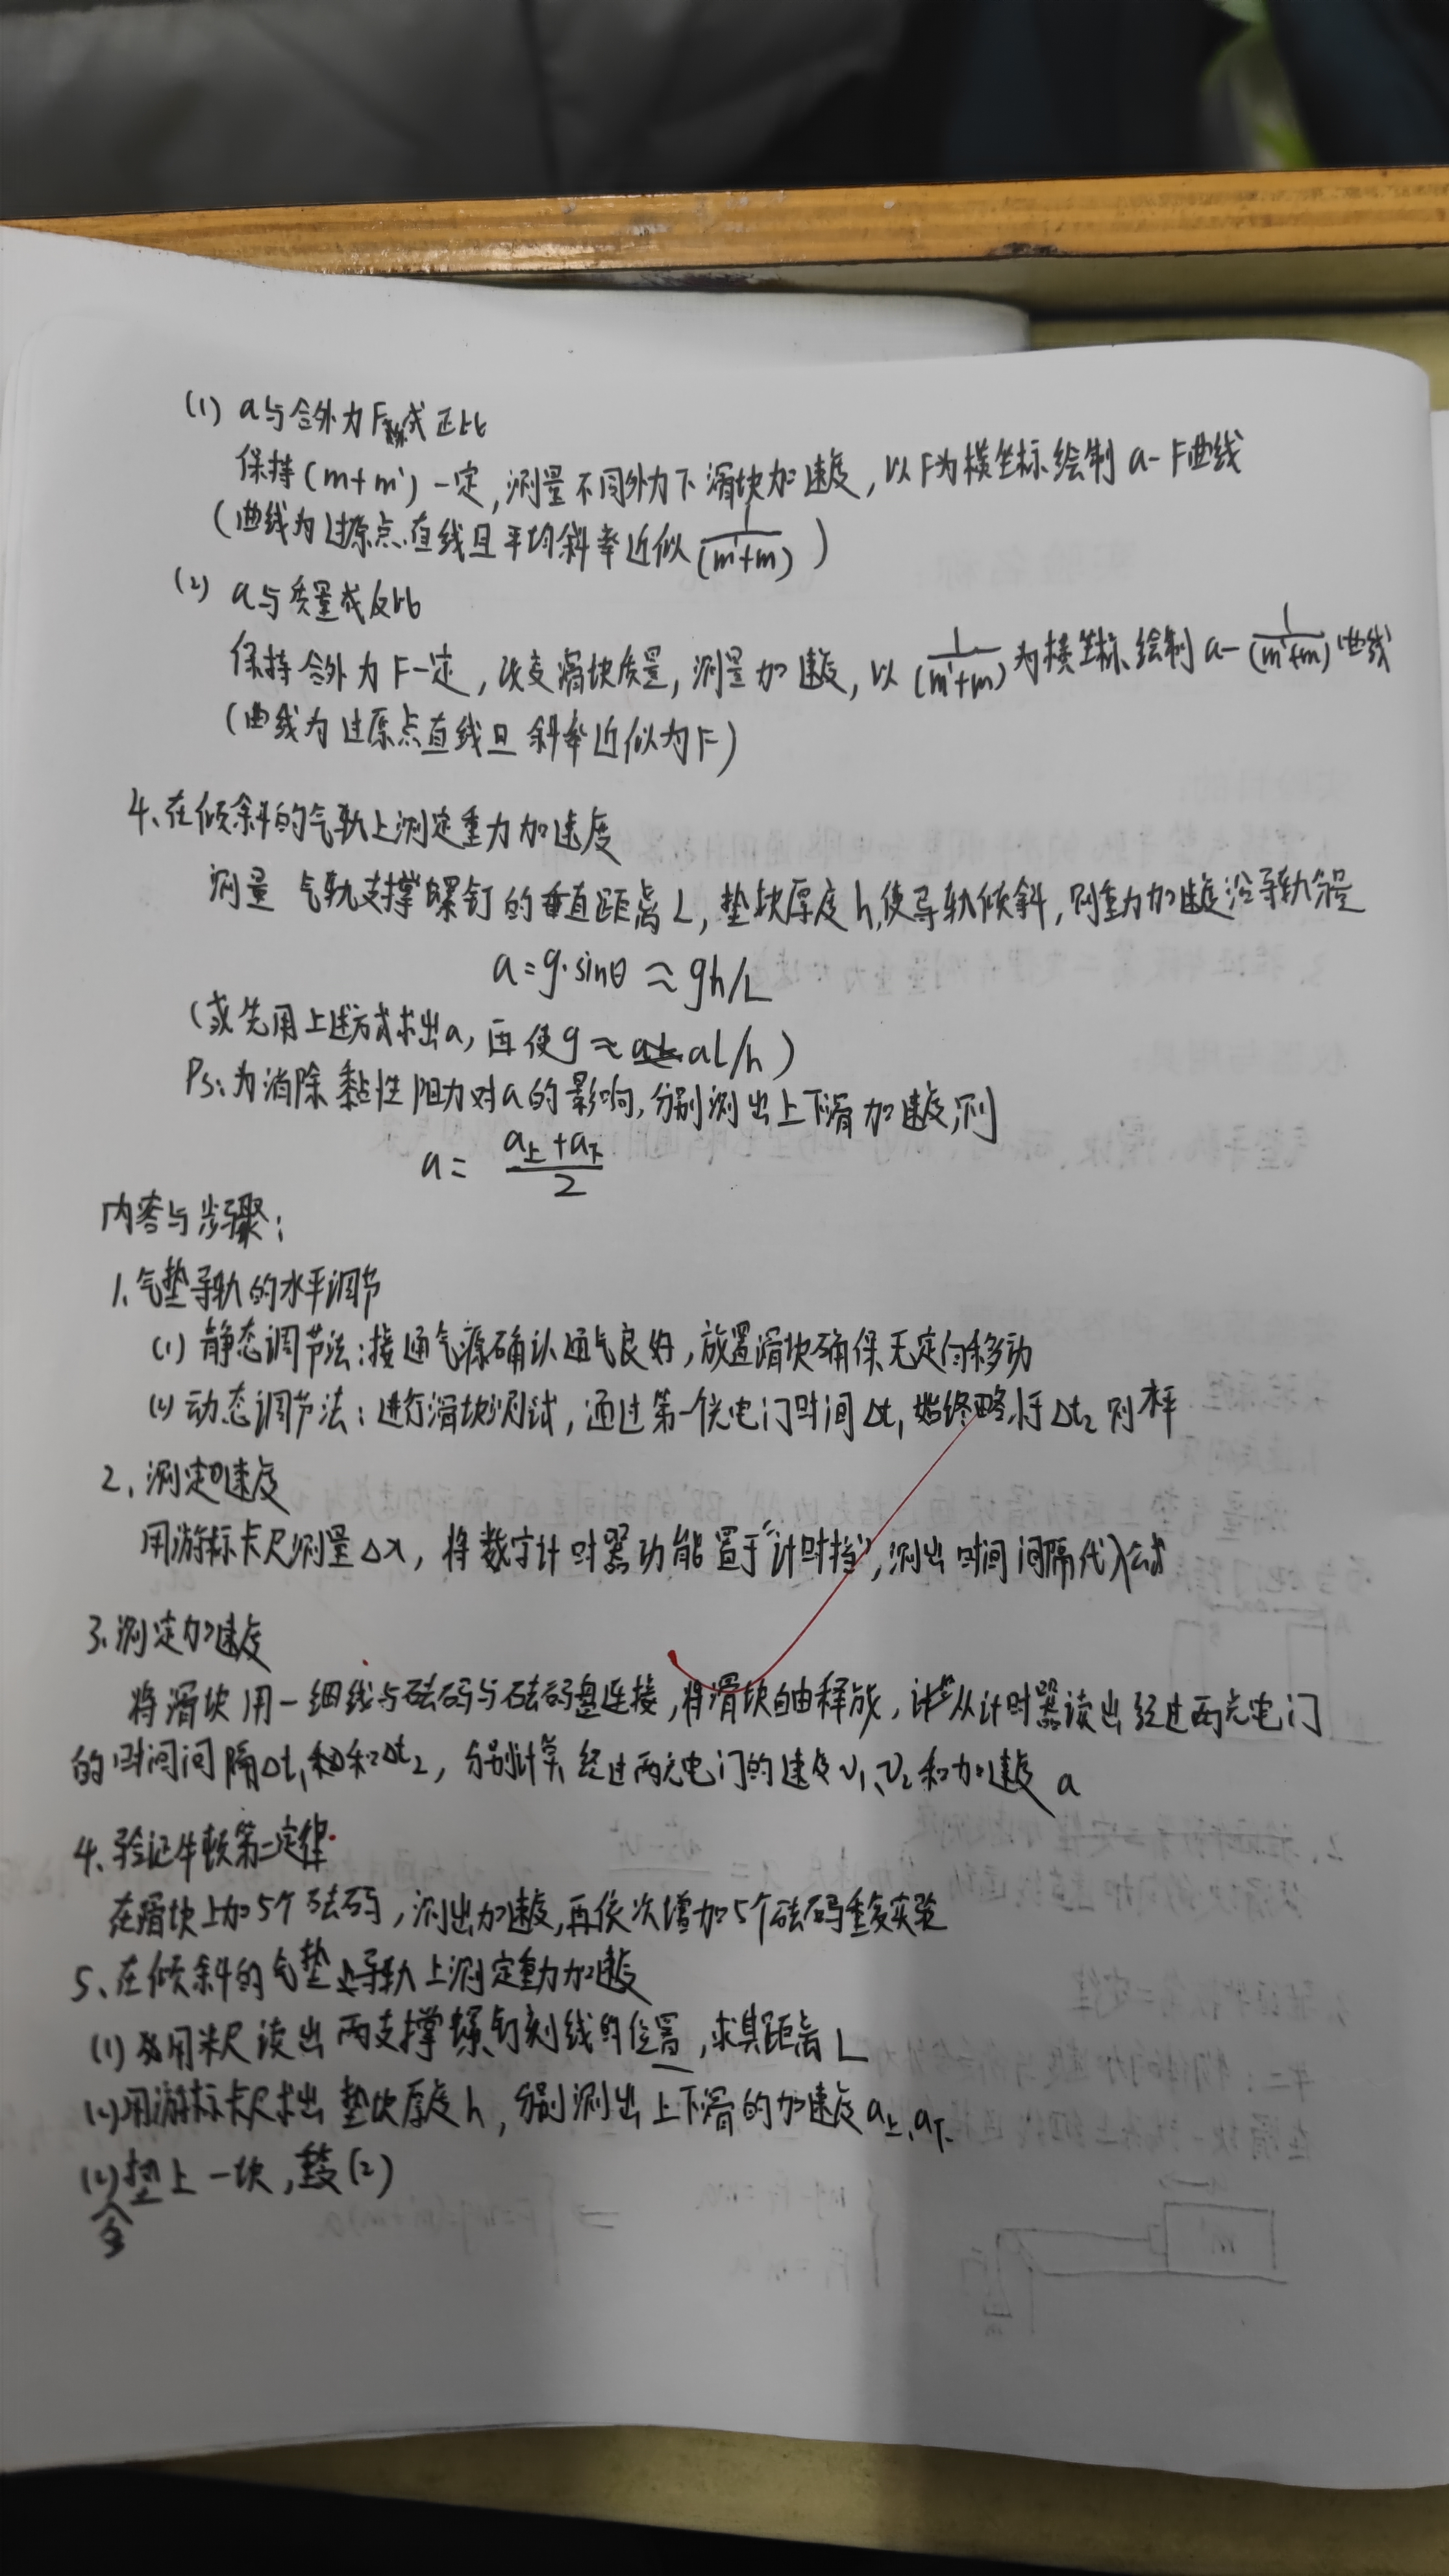 (1) a与合外力F成正比
保持(m+m')一定,测量不同外力下滑块加速度,以F为横坐标绘制a-F曲线
(曲线为过原点直线且平均斜率近似 1/(m'+m) )
(2) a与质量成反比
保持合外力F一定,改变滑块质量,测量加速度,以 1/(m'+m) 为横坐标绘制a- 1/(m'+m) 曲线
(曲线为过原点直线且斜率近似为F)
4、在倾斜的气轨上测定重力加速度
测量气轨支撑螺钉的垂直距离L,垫块厚度h,使导轨倾斜,则重力加速度沿导轨分量
a=g·sinθ≈gh/L
(或先用上述方式求出a,再使g≈aL/h)
Ps:为消除黏性阻力对a的影响,分别测出上下滑加速度,则
a= (a上+a下)/2
内容与步骤:
1、气垫导轨的水平调节
(1) 静态调节法:接通气源确认通气良好,放置滑块确保无定向移动
(2) 动态调节法:进行滑块测试,通过第一个光电门时间Δt₁始终略小于Δt₂则水平
2、测定速度
用游标卡尺测量Δx,将数字计时器功能置于“计时挡”,测出时间间隔代入公式
3、测定加速度
将滑块用一细线与砝码与砝码盘连接,将滑块自由释放,从计时器读出经过两光电门
的时间间隔Δt₁和Δt₂,分别计算经过两光电门的速度v₁、v₂和加速度a
4、验证牛顿第二定律
在滑块上加5个砝码,测出加速度,再依次增加5个砝码重复实验
5、在倾斜的气垫导轨上测定重力加速度
(1)用米尺读出两支撑螺钉刻线的位置,求其距离L
(2)用游标卡尺求出垫块厚度h,分别测出上下滑的加速度a上、a下
(2)垫上一块,重复(2)
3